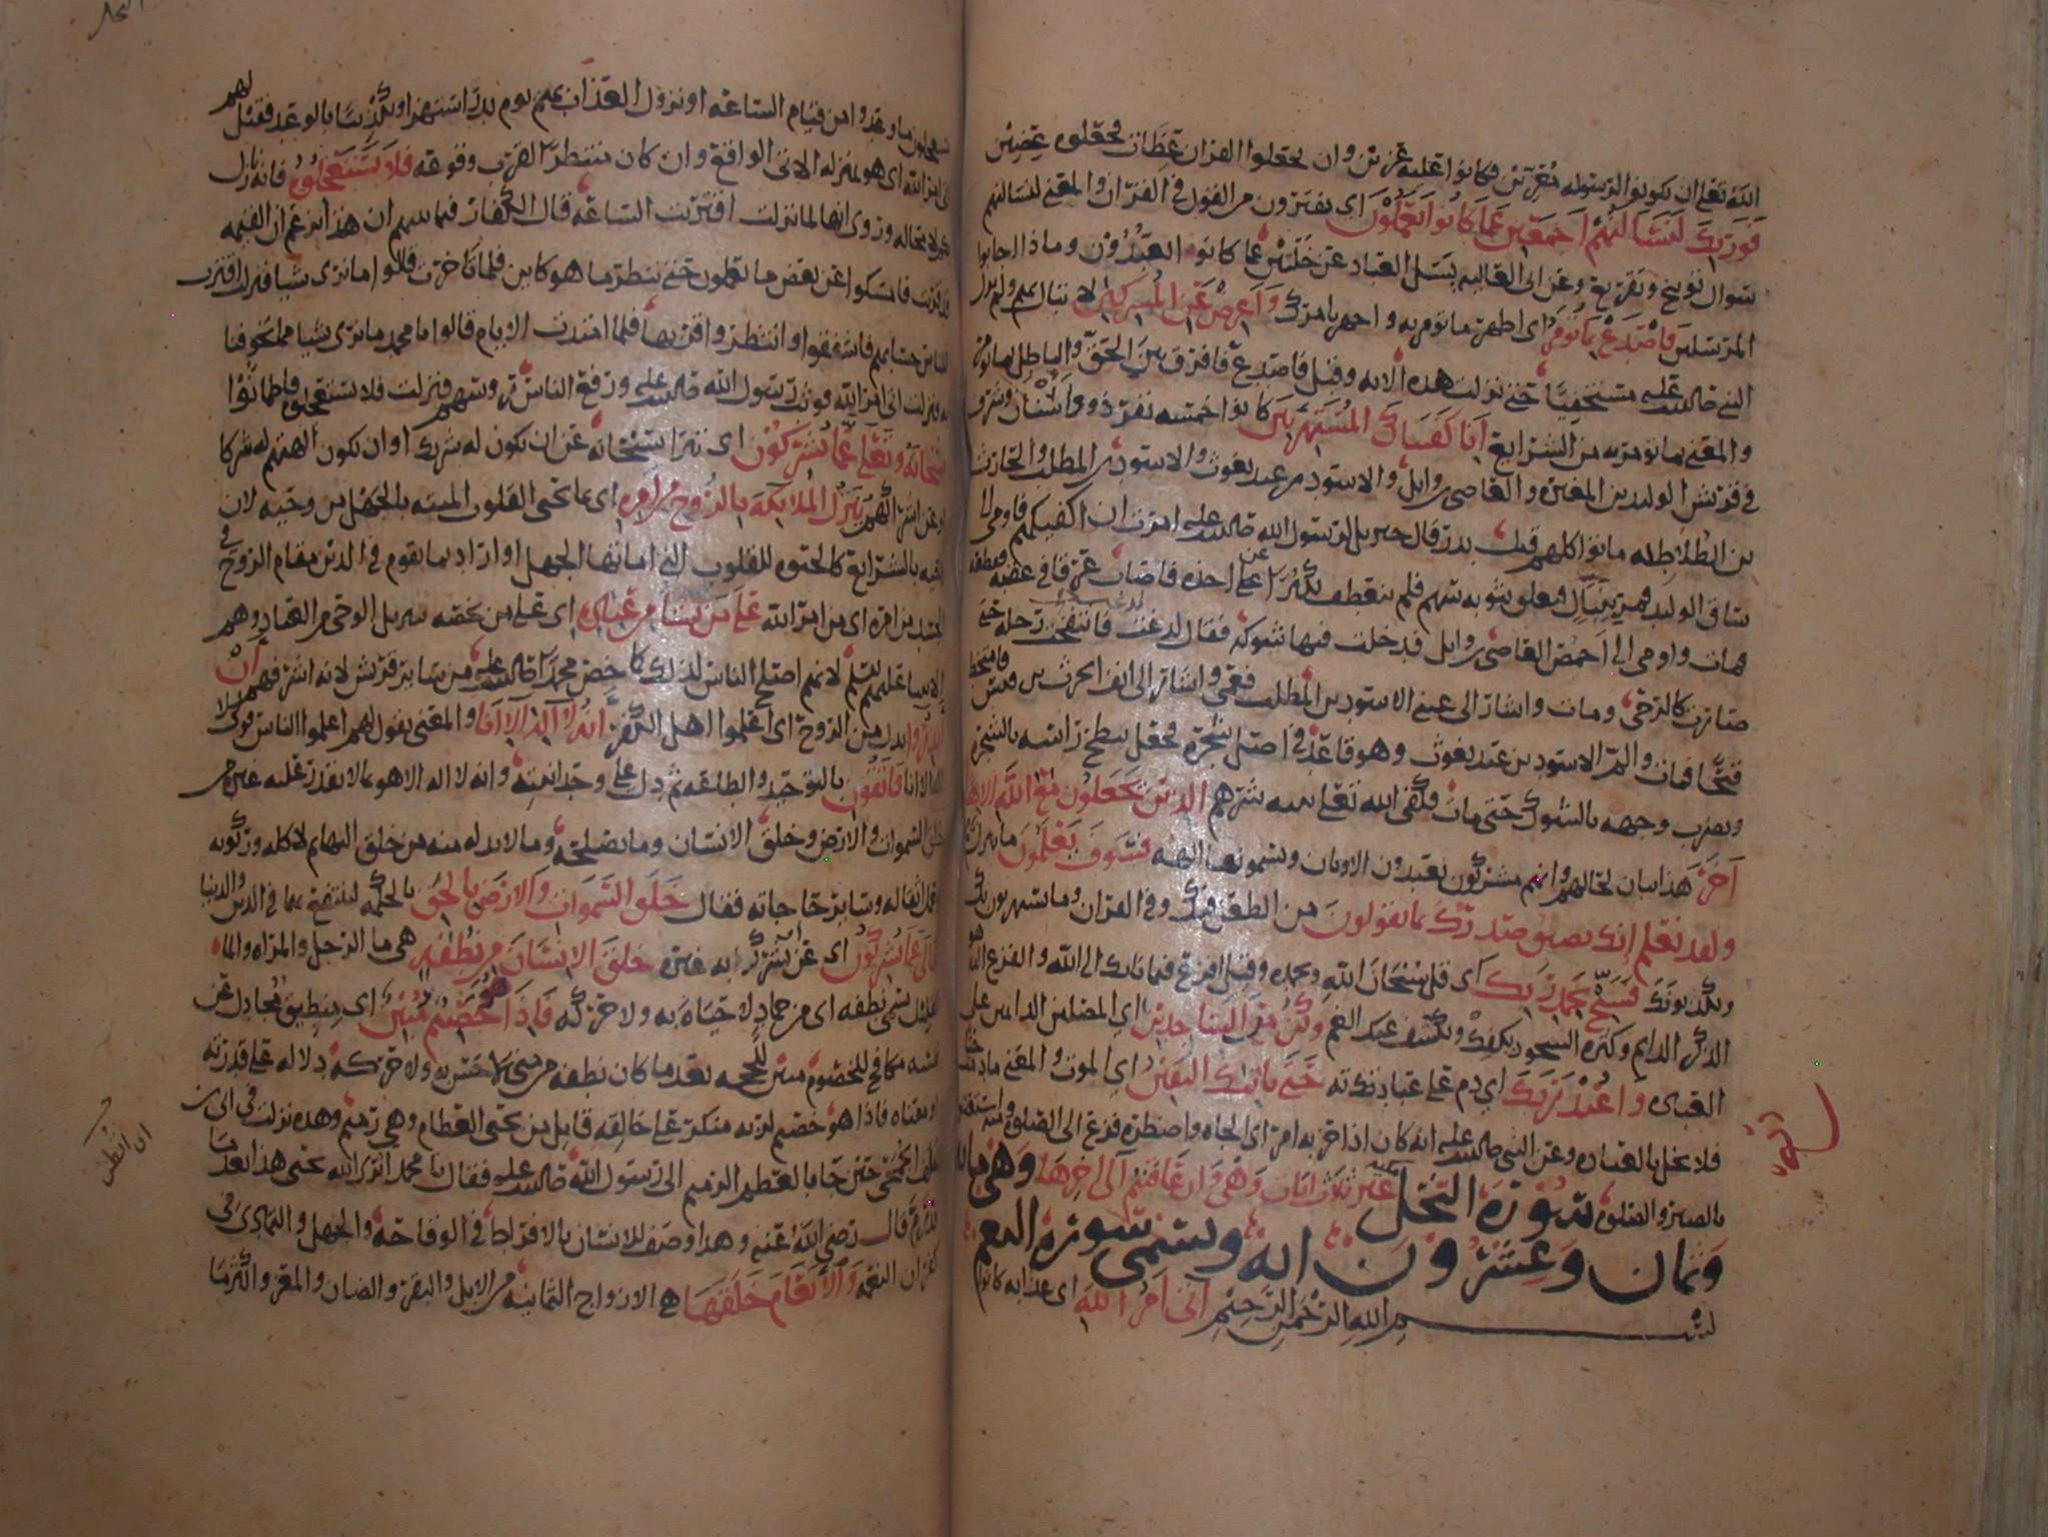 الله تعالى ان يكونوا الرسوله مقرين فكانوا عليه عزين وان يجعلوا القران عظات فجعلوه عضين
فوربك لنسألنهم اجمعين عما كانوا يعملون اي يفترون من القول في القران والمعنى لنسالنهم
سوال توبيخ وتقريع وعن ابي العاليه يسل العباد عن خلتين عما كانوا يعبدون وما ذا اجابوا
المرسلين فاصدع بما تومر اي اظهر ما تومر به واجهر بامرك واعرض عن المشركين لا تبال بهم ولم يزل
النبي صلى الله عليه مستخفيا حتى نزلت هذه الايه وقيل فاصدع فافرق بين الحق والباطل بما تومر
والمعنى بما تومر به من الشرايع انا كفيناك المستهزين كانوا خمسه نفر ذوي اسنان وشرف
في قريش الوليد بن المغيره والعاصي بن وايل والاسود بن عبد يغوث والاسود بن المطلب والحارث
بن الطلاطله ماتوا كلهم قبل بدر قال جبريل لرسول الله صلى الله عليه امرت ان اكفيكهم فاومى الى
ساق الوليد فمر بنبال فتعلق بثوبه سهم فلم ينعطف تكبرا عن اخذه فاصاب عرقا في عقبه فقطعه
فمات واومى الى اخمص العاصي بن وايل فدخلت فيها شوكه فقال لدغت لدغت فانتفخت رجله حتى
صارت كالرحى ومات واشار الى عيني الاسود بن المطلب فعمي واشار الى انف الحرث بن قيس فامتخط
قيحا فمات والى الاسود بن عبد يغوث وهو قاعد في اصل شجره فجعل ينطح راسه بالشجره
ويضرب وجهه بالشوك حتى مات فكفى الله تعالى نبيه شرهم الذين يجعلون مع الله الاها
اخر هذا بيان لحالهم وانهم مشركون يعبدون الاوثان ويسمونها الهه فسوف يعلمون
ولقد نعلم انك يضيق صدرك بما يقولون من الطعن فيك وفي القران وما يستهزون بك
ويكذبونك فسبح بحمد ربك اي قل سبحان الله وبحمده وقيل افزع فيما نابك الى الله والفزع الى الله هو
الذكر الدايم وكثره السجود يكفك ويكشف عنك الغم وكن من الساجدين اي المصلين الدايمين على
العباده واعبد ربك اي دم على عبادتك حتى ياتيك اليقين اي الموت والمعنى ما دمت حيا
فلا تخل بالعباده وعن النبي صلى الله عليه انه كان اذا حزبه امر اي الجاه واضطره فزع الى الصلوه
بالصبر والصلوه سورة النحل غير ثلاث ايات وهي وان عاقبتم الى اخرها وهي مايه
وثمان وعشرون ايه وتسمى سورة النعم
بسم الله الرحمن الرحيم اتى امر الله اي عذابه كانوا
يستعجلون ما وعدوا من قيام الساعه او نزول العذاب بهم يوم بدر استهزا وتكذيبا بالوعد فقيل لهم
اتى امر الله اي هو بمنزله الاتي الواقع وان كان منتظرا لقرب وقوعه فلا تستعجلوه فانه نازل
بكم لا محاله وروى انها لما نزلت اقتربت الساعه قال الكفار فيما بينهم ان هذا يزعم ان القيمه
قد قربت فامسكوا عن بعض ما تعملون حتى ننظر ما هو كاين فلما تاخرت قالوا ما نرى شيا فنزلت اقترب
للناس حسابهم فاشفقوا وانتظروا قربها فلما امتدت الايام قالوا يا محمد ما نرى شيا مما تخوفنا
به فنزلت اتى امر الله فوثب رسول الله صلى الله عليه ورفع الناس روسهم فنزلت فلا تستعجلوه فاطمانوا
سبحانه وتعالى عما يشركون اي تبرا سبحانه عن ان يكون له شريك او ان تكون الهتهم له شركا
او عن اشراكهم ينزل الملايكه بالروح من امره اي بما تحيى القلوب الميته بالجهل من وحيه لان
احيه بالشرايع كالحيوه للقلوب التي اماتها الجهل او اراد بما يقوم في الدين مقام الروح في
الجسد من امره اي من امر الله على من يشا من عباده اي على من يخصه بتنزيل الوحي من العباد وهم
الانبيا عليهم السلم لانهم اصلح الناس لذلك كما خص محمدا صلى الله عليه من ساير قريش لانه اشرفهم ان
انذروا بدل من الروح اي اعلموا اهل الكفر انه لا اله الا انا والمعنى يقول لهم اعلموا الناس قولي لا
اله الا انا فاتقون بالتوحيد والطاعه ثم دل على وحدانيته وانه لا اله الا هو بما لا يقدر عليه غيره من
خلق السموات والارض وخلق الانسان وما يصلحه وما لا بد له منه من خلق البهايم لاكله وركوبه
وحمل اثقاله وساير حاجاته فقال خلق السموات والارض بالحق بالحكمه لينتفع بهما في الدين والدنيا
تعالى عما يشركون اي عن ان يشرك به غيره خلق الانسان من نطفه هي ما الرجل والمراه والماء
القليل يسمى نطفه اي من جماد لا حياه به ولا حركه فاذا هو خصيم مبين اي منطيق مجادل عن
نفسه مكافح للخصوم مبين للحجه بعد ما كان نطفه من مني لا حس به ولا حركه دلاله على قدرته
او معناه فاذا هو خصيم لربه منكر على خالقه قايل من يحيى العظام وهي رميم وهذه نزلت في ابي بن
خلف الجمحي حين جا بالعظم الرميم الى رسول الله صلى الله عليه فقال يا محمد اترى الله يحيى هذا بعد ما
قد رم قال رضي الله عنه وهذا وصف للانسان بالافراط في الوقاحه والجهل والتمادي في
كفران النعمه والانعام خلقها هي الازواج الثمانيه من الابل والبقر والضان والمعز واكثر ما